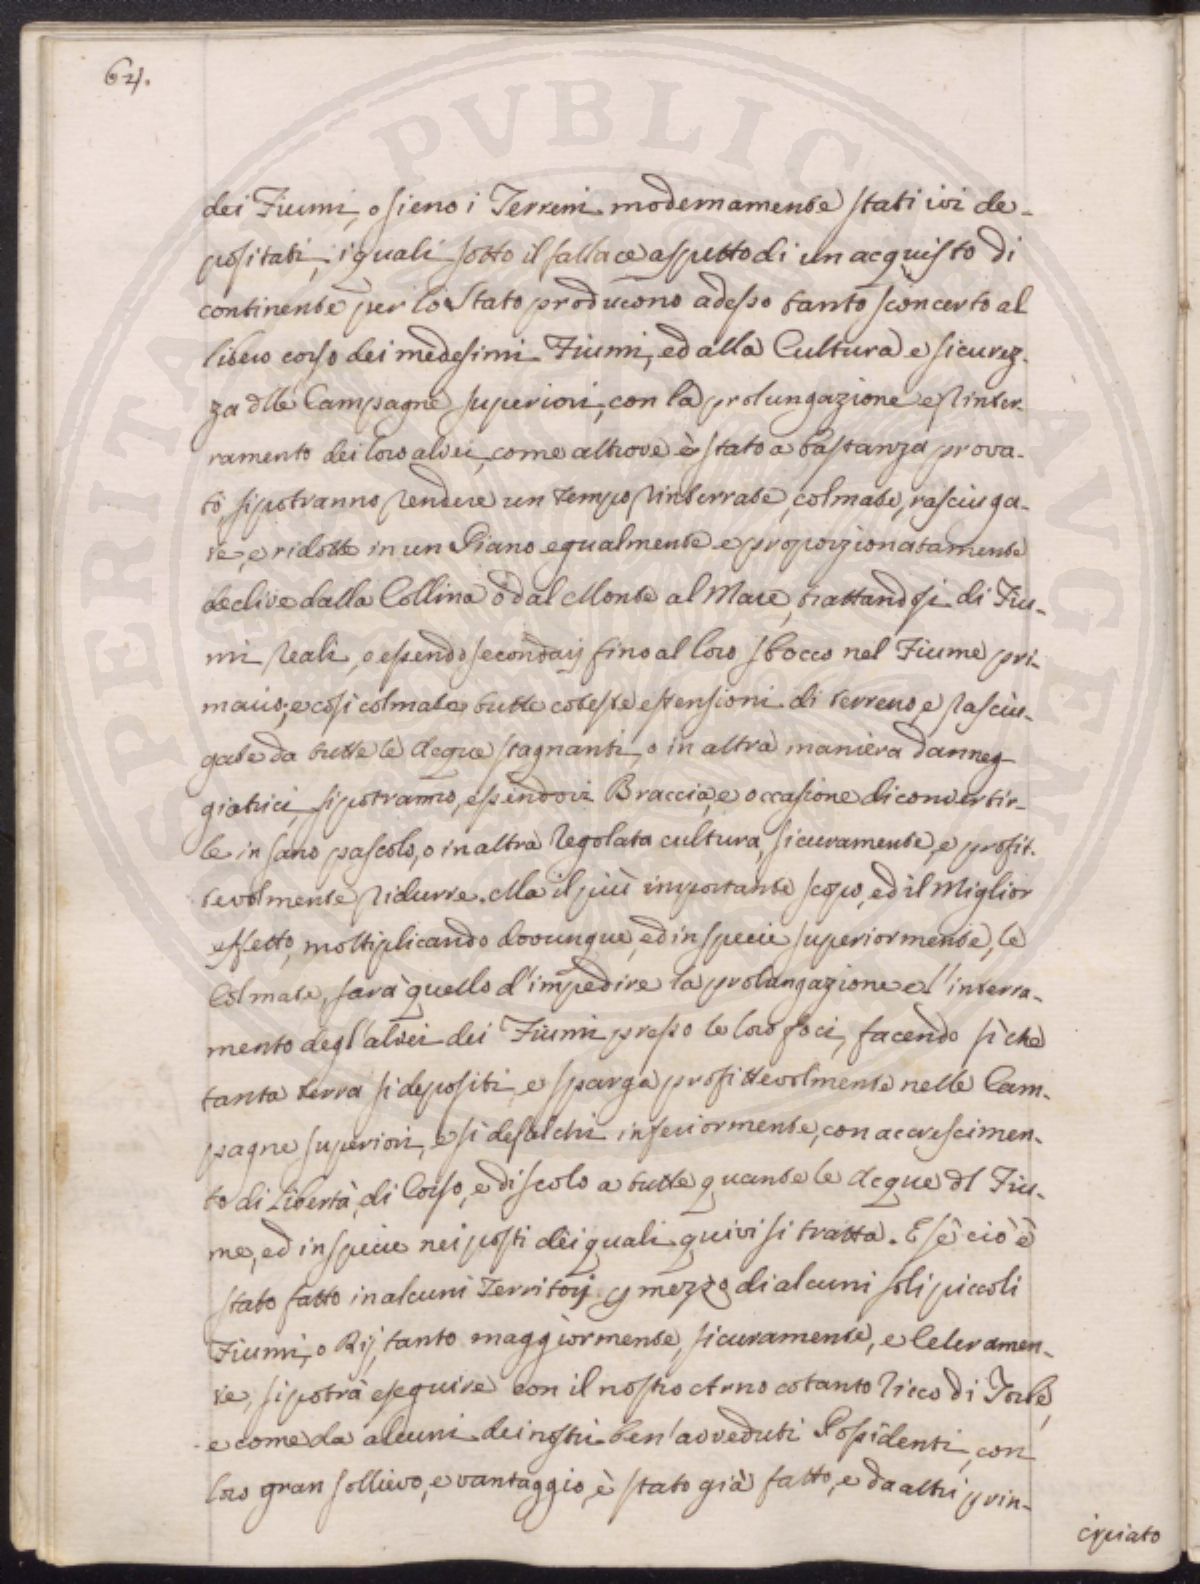 64.
dei Fiumi, o sieno i Terreni modernamente stati ivi de-
positati, i quali sotto il fallace aspetto di un acquisto di
continente per lo Stato producono adesso tanto sconcerto al
libero corso dei medesimi Fiumi, ed alla Cultura e sicurez-
za dlle Campagne superiori, con la prolungazione e rinter-
ramento dei loro alvei, come altrove è stato a bastanza prova-
to, si potranno rendere un tempo rinterrate, colmate, rasciuga-
te, e ridotte in un Piano egualmente e proporzionatamente
declive dalla Collina ò dal Monte al Mare, trattandosi di Fiu-
mi reali, o essendo secondarj fino al loro sbocco nel Fiume pri-
mario; e così colmate tutte coteste estensioni di terreno, e rasciu-
gate da tutte le Acque stagnanti, o in altra maniera danneg-
giatrici, si potranno, essendovi Braccia, e occasione di convertir-
le in sano pascolo, o in altra regolata cultura, sicuramente, e profit-
tevolmente ridurre. Ma il più importante scopo, ed il Miglior
effetto, moltiplicando dovunque, ed in specie superiormente, le
Colmate, sarà quello d'impedire la prolungazione e l'interra-
mento degl'alvei dei Fiumi presso le loro foci, facendo sì che
tanta terra si depositi, e sparga profittevolmente nelle Cam-
pagne superiori, e si defalchi inferiormente, con accrescimen-
to di Libertà, di Corso, e di scolo a tutte quante le Acque dl Fiu-
me, ed in specie nei posti dei quali quivi si tratta. E se ciò è
stato fatto in alcuni Territorj p mezzo di alcuni soli piccoli
Fiumi, o Rij, tanto maggiormente, sicuramente, e Celeramen-
te, si potrà eseguire con il nostro Arno cotanto ricco di Torbe,
e come da alcuni dei nostri ben'avveduti Possidenti, con
loro gran sollievo, e vantaggio, è stato già fatto, e da altri prin-
cipiato
PVBLIC
SPERITA
AVGEN